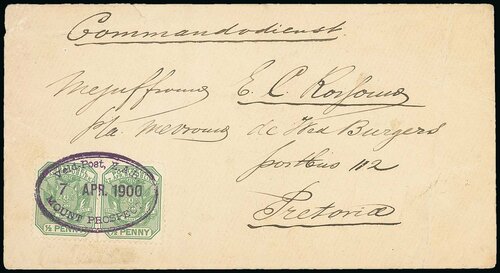 Commandodienst
Mejuffrouw E. C.
p/a Mevrouw de Wed Burgers
postbus 112
Pretoria
Veld-Post, Z.A.R.
7 APR. 1900
MOUNT PROSPECT
½ PENNY ½ PENNY